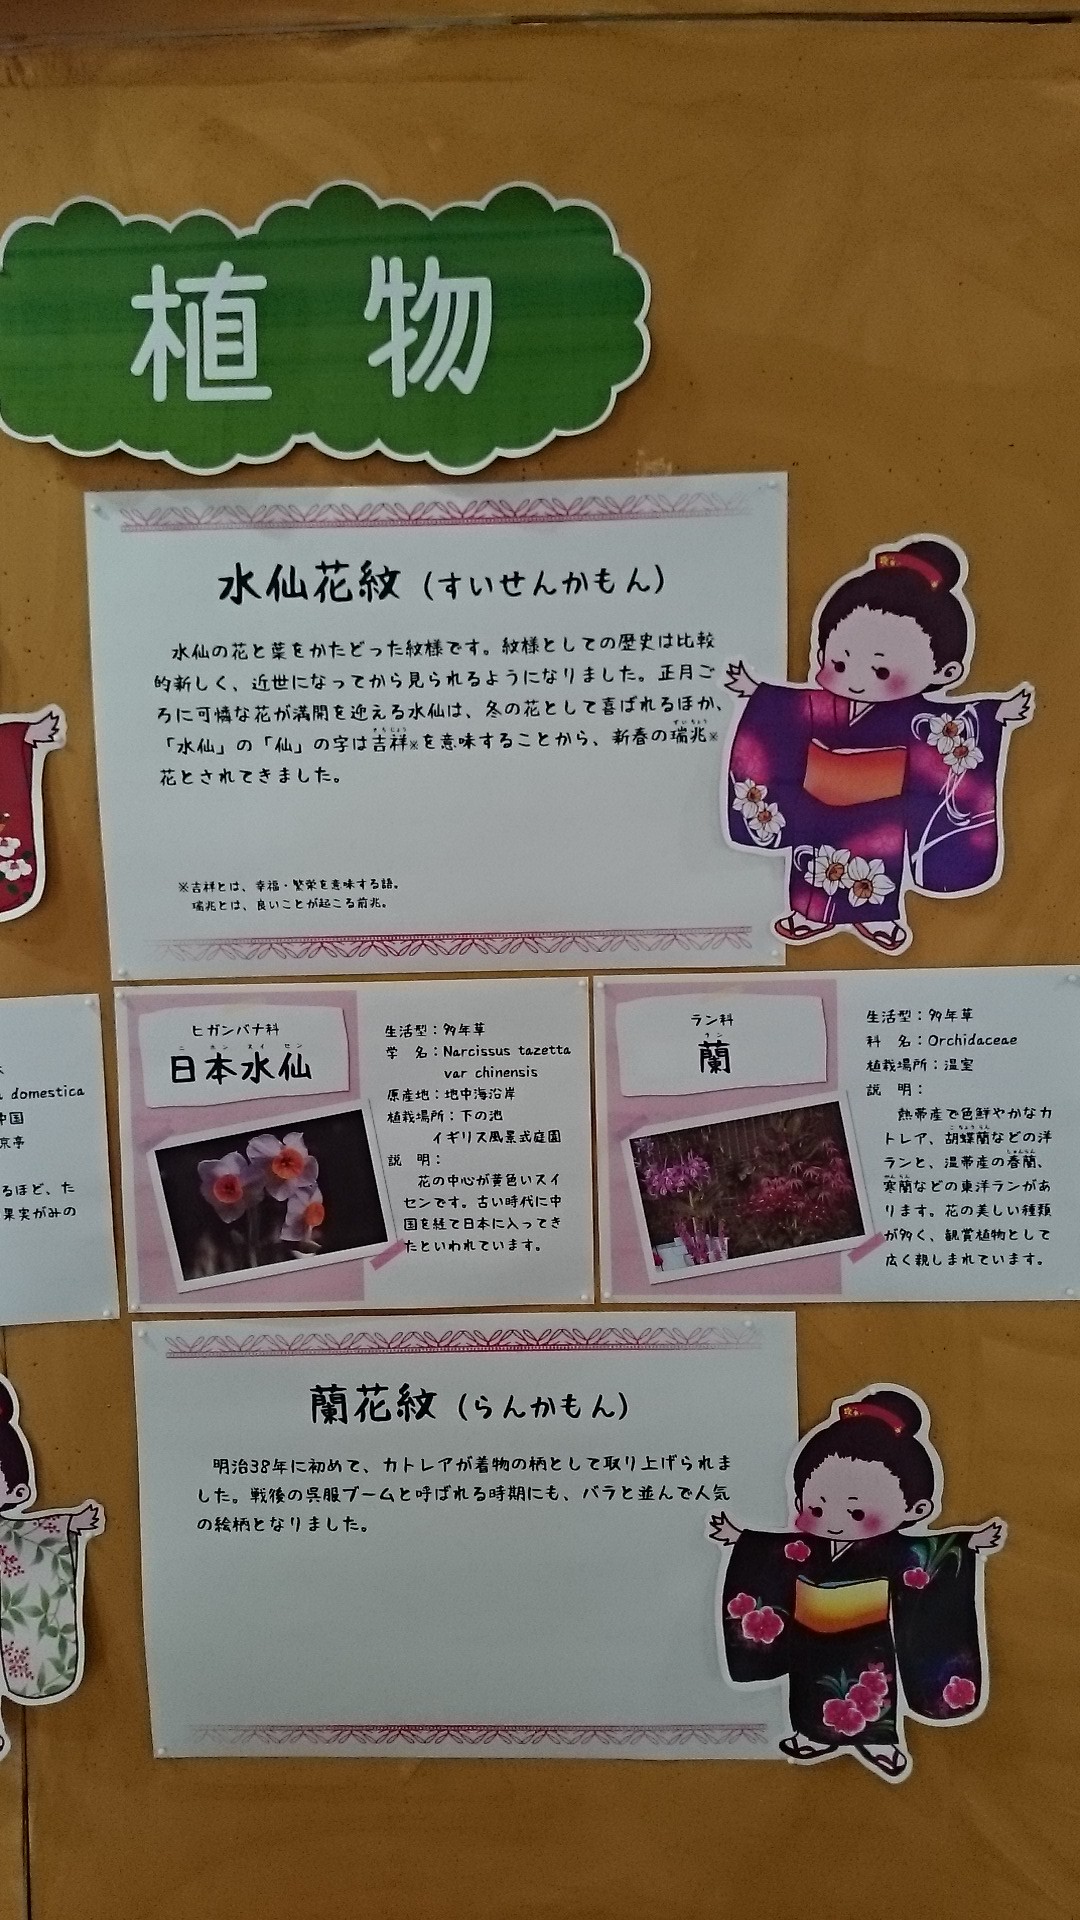 植物
水仙花紋（すいせんかもん）
水仙の花と葉をかたどった紋様です。紋様としての歴史は比較
的新しく、近世になってから見られるようになりました。正月ご
ろに可憐な花が満開を迎える水仙は、冬の花として喜ばれるほか、
「水仙」の「仙」の字は吉祥※を意味することから、新春の瑞兆※
花とされてきました。
※吉祥とは、幸福・繁栄を意味する語。
瑞兆とは、良いことが起こる前兆。
domestica
中国
京亭
るほど、た
果実がみの
ヒガンバナ科
ニホンズイセン
日本水仙
生活型：多年草
学　名：Narcissus tazetta
var chinensis
原産地：地中海沿岸
植栽場所：下の池
イギリス風景式庭園
説　明：
花の中心が黄色いスイ
センです。古い時代に中
国を経て日本に入ってき
たといわれています。
ラン科
ラン
蘭
生活型：多年草
科　名：Orchidaceae
植栽場所：温室
説　明：
熱帯産で色鮮やかなカ
トレア、胡蝶蘭などの洋
ランと、温帯産の春蘭、
寒蘭などの東洋ランがあ
ります。花の美しい種類
が多く、観賞植物として
広く親しまれています。
蘭花紋（らんかもん）
明治38年に初めて、カトレアが着物の柄として取り上げられま
した。戦後の呉服ブームと呼ばれる時期にも、バラと並んで人気
の絵柄となりました。